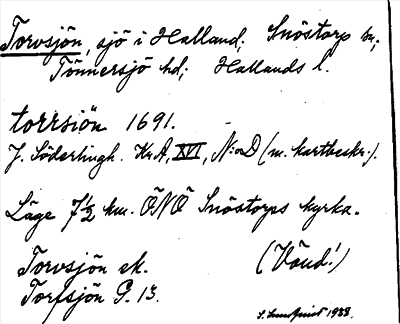 Torvsjön, sjö i Halland; Snöstorps sn;
Tönnersjö hd; Hallands l.
torrsiön 1691.
J. Söderlingh. KrA, XVI, N:o D (m. kartbeskr.).
Läge 7½ km. ÖNÖ Snöstorps kyrka.
Torvsjön ek. (Vänd!)
Torfsjön G. 13.
S. Lundquist 1933.